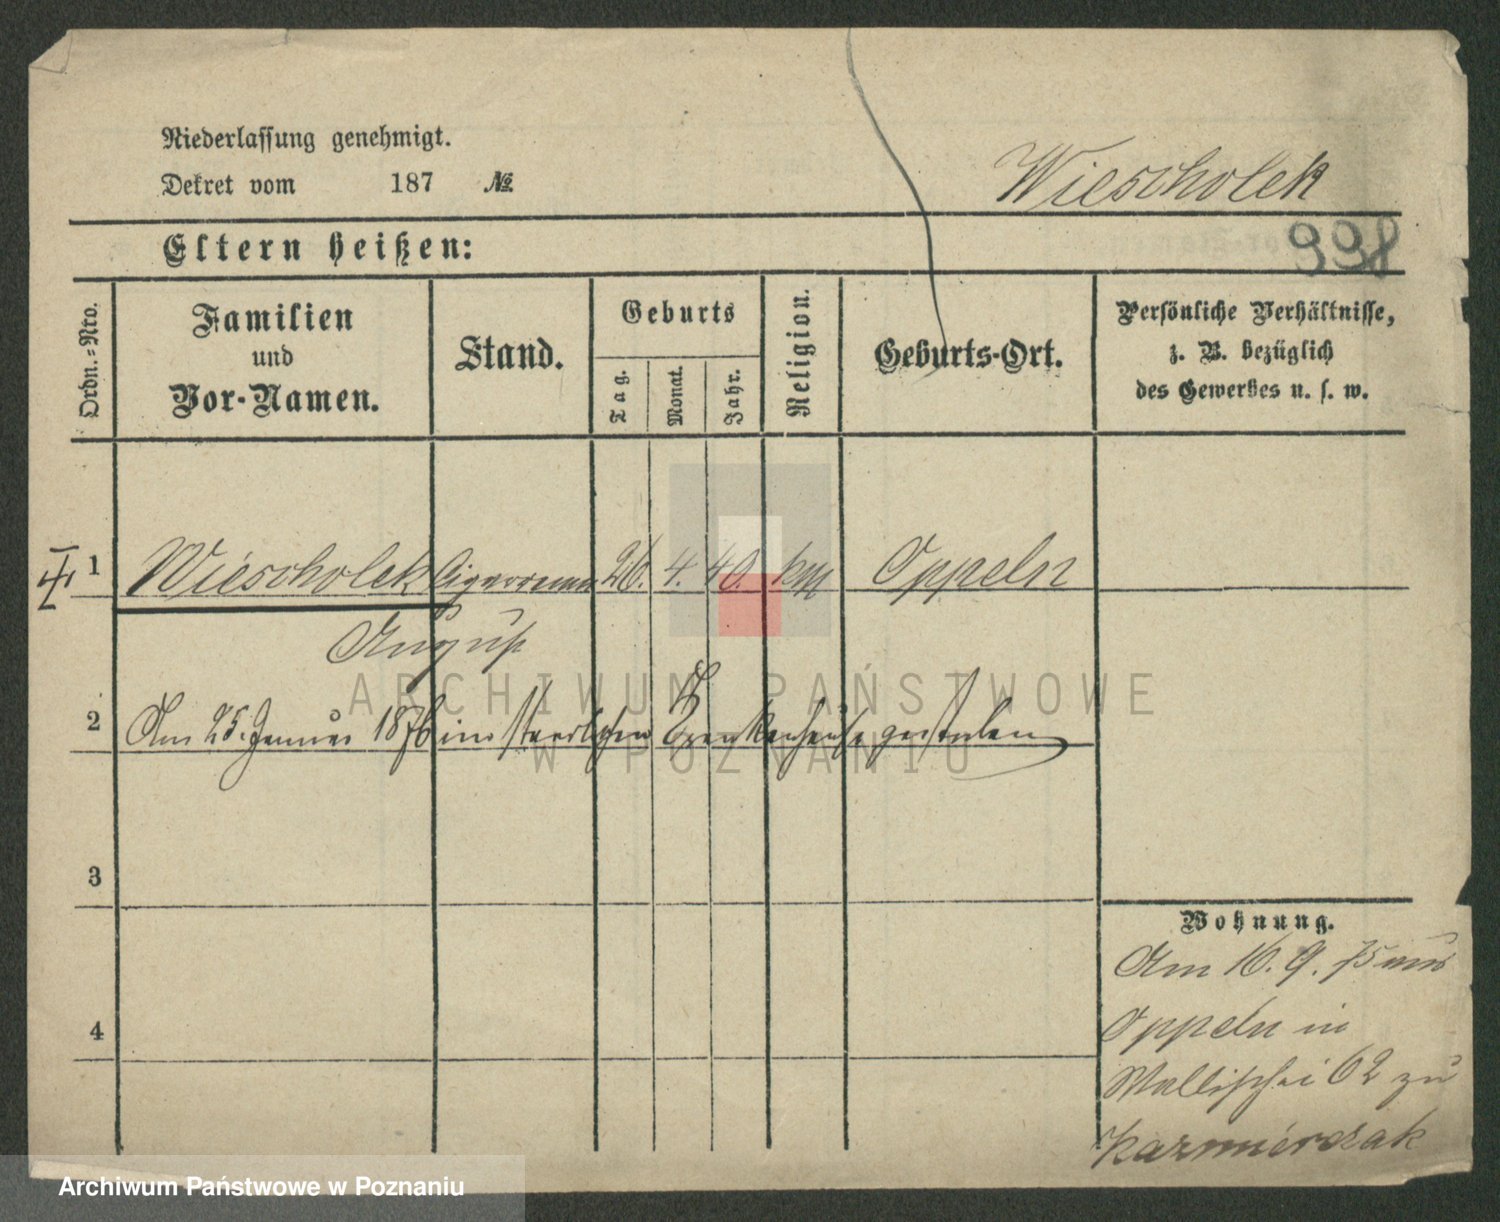 Niederlassung genehmigt.
Dekret vom 187 №
Wiescholek
998
Eltern heißen:
Ordn.-Nro.
Familien
und
Vor-Namen.
Stand.
Geburts
Tag.
Monat.
Jahr.
Religion.
Geburts-Ort.
Persönliche Verhältnisse,
z. B. bezüglich
des Gewerbes u. s. w.
1 Wiescholek 26. 4. 40. Oppeln
August
2 Am 25. Januar 1876 im staedtischen Krankenhause gestorben
3
4
Wohnung.
Am 16. 9. 75 aus
Oppeln in
Wallischei 62 zu
Kazmierczak
ARCHIWUM PAŃSTWOWE
W POZNANIU
Archiwum Państwowe w Poznaniu